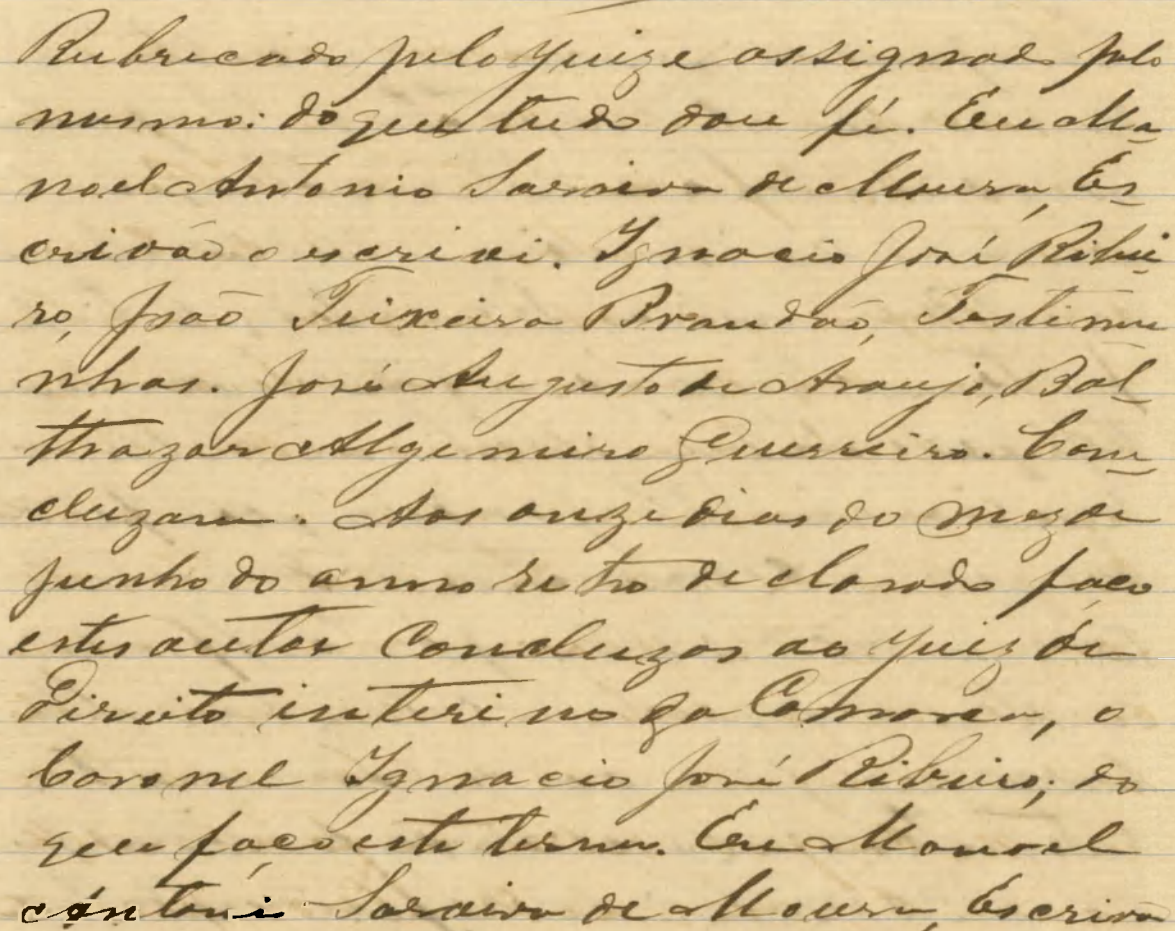 Rubricado pelo Juiz e assignado pelo
mesmo: do que tudo dou fé. Eu Ma-
noel Antonio Saraiva de Moura, Es-
crivão o escrivi. Ignacio José Ribei-
ro, João Teixeira Brandão, Testimu
nhas. José Augusto de Araujo, Bal-
thazar Algemiro Guerreiro. Con-
cluzam. Aos onze dias do mez de
Junho do anno retro declarado faço
estes autos Concluzos ao Juiz de
Direito interino da Comarca, o
Coronel Ignacio José Ribeiro; do
que faço este termo. Eu Manoel
Antoni Saraiva de Moura, Escrivã